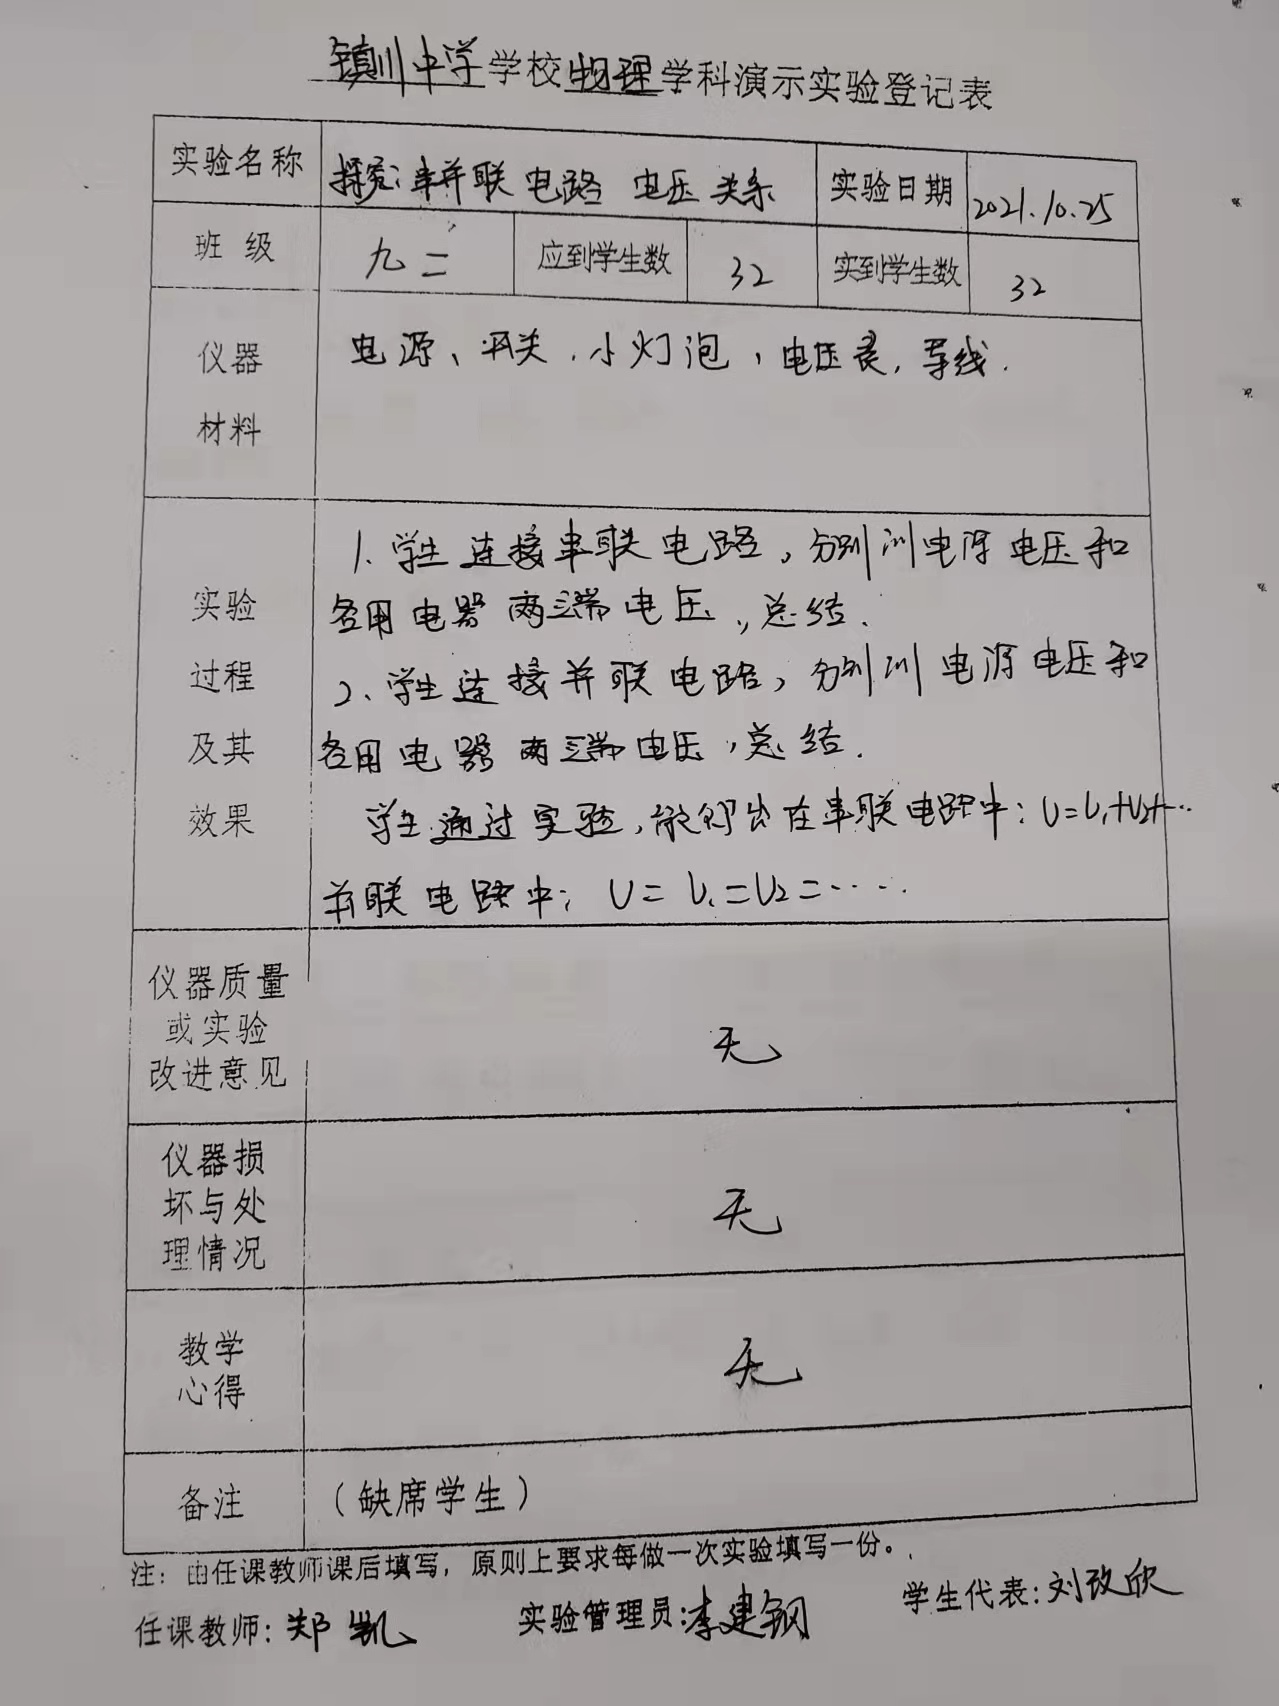 镇川中学学校物理学科演示实验登记表
实验名称 探究串并联电路 电压关系 实验日期 2021.10.25
班 级 九二 应到学生数 32 实到学生数 32
仪器
材料
电源、开关,小灯泡,电压表,导线.
实验
过程
及其
效果
1.学生连接串联电路,分别测电源电压和
各用电器两端电压,总结.
2、学生连接并联电路,分别测电源电压和
各用电器两端电压,总结.
学生通过实验,都得出在串联电路中:U=U₁+U₂+…
并联电路中:U=U₁=U₂=……
仪器质量
或实验
改进意见
无
仪器损
坏与处
理情况
无
教学
心得
无
备注 (缺席学生)
注:由任课教师课后填写,原则上要求每做一次实验填写一份。
任课教师:郑凯 实验管理员:李建钢 学生代表:刘改欣